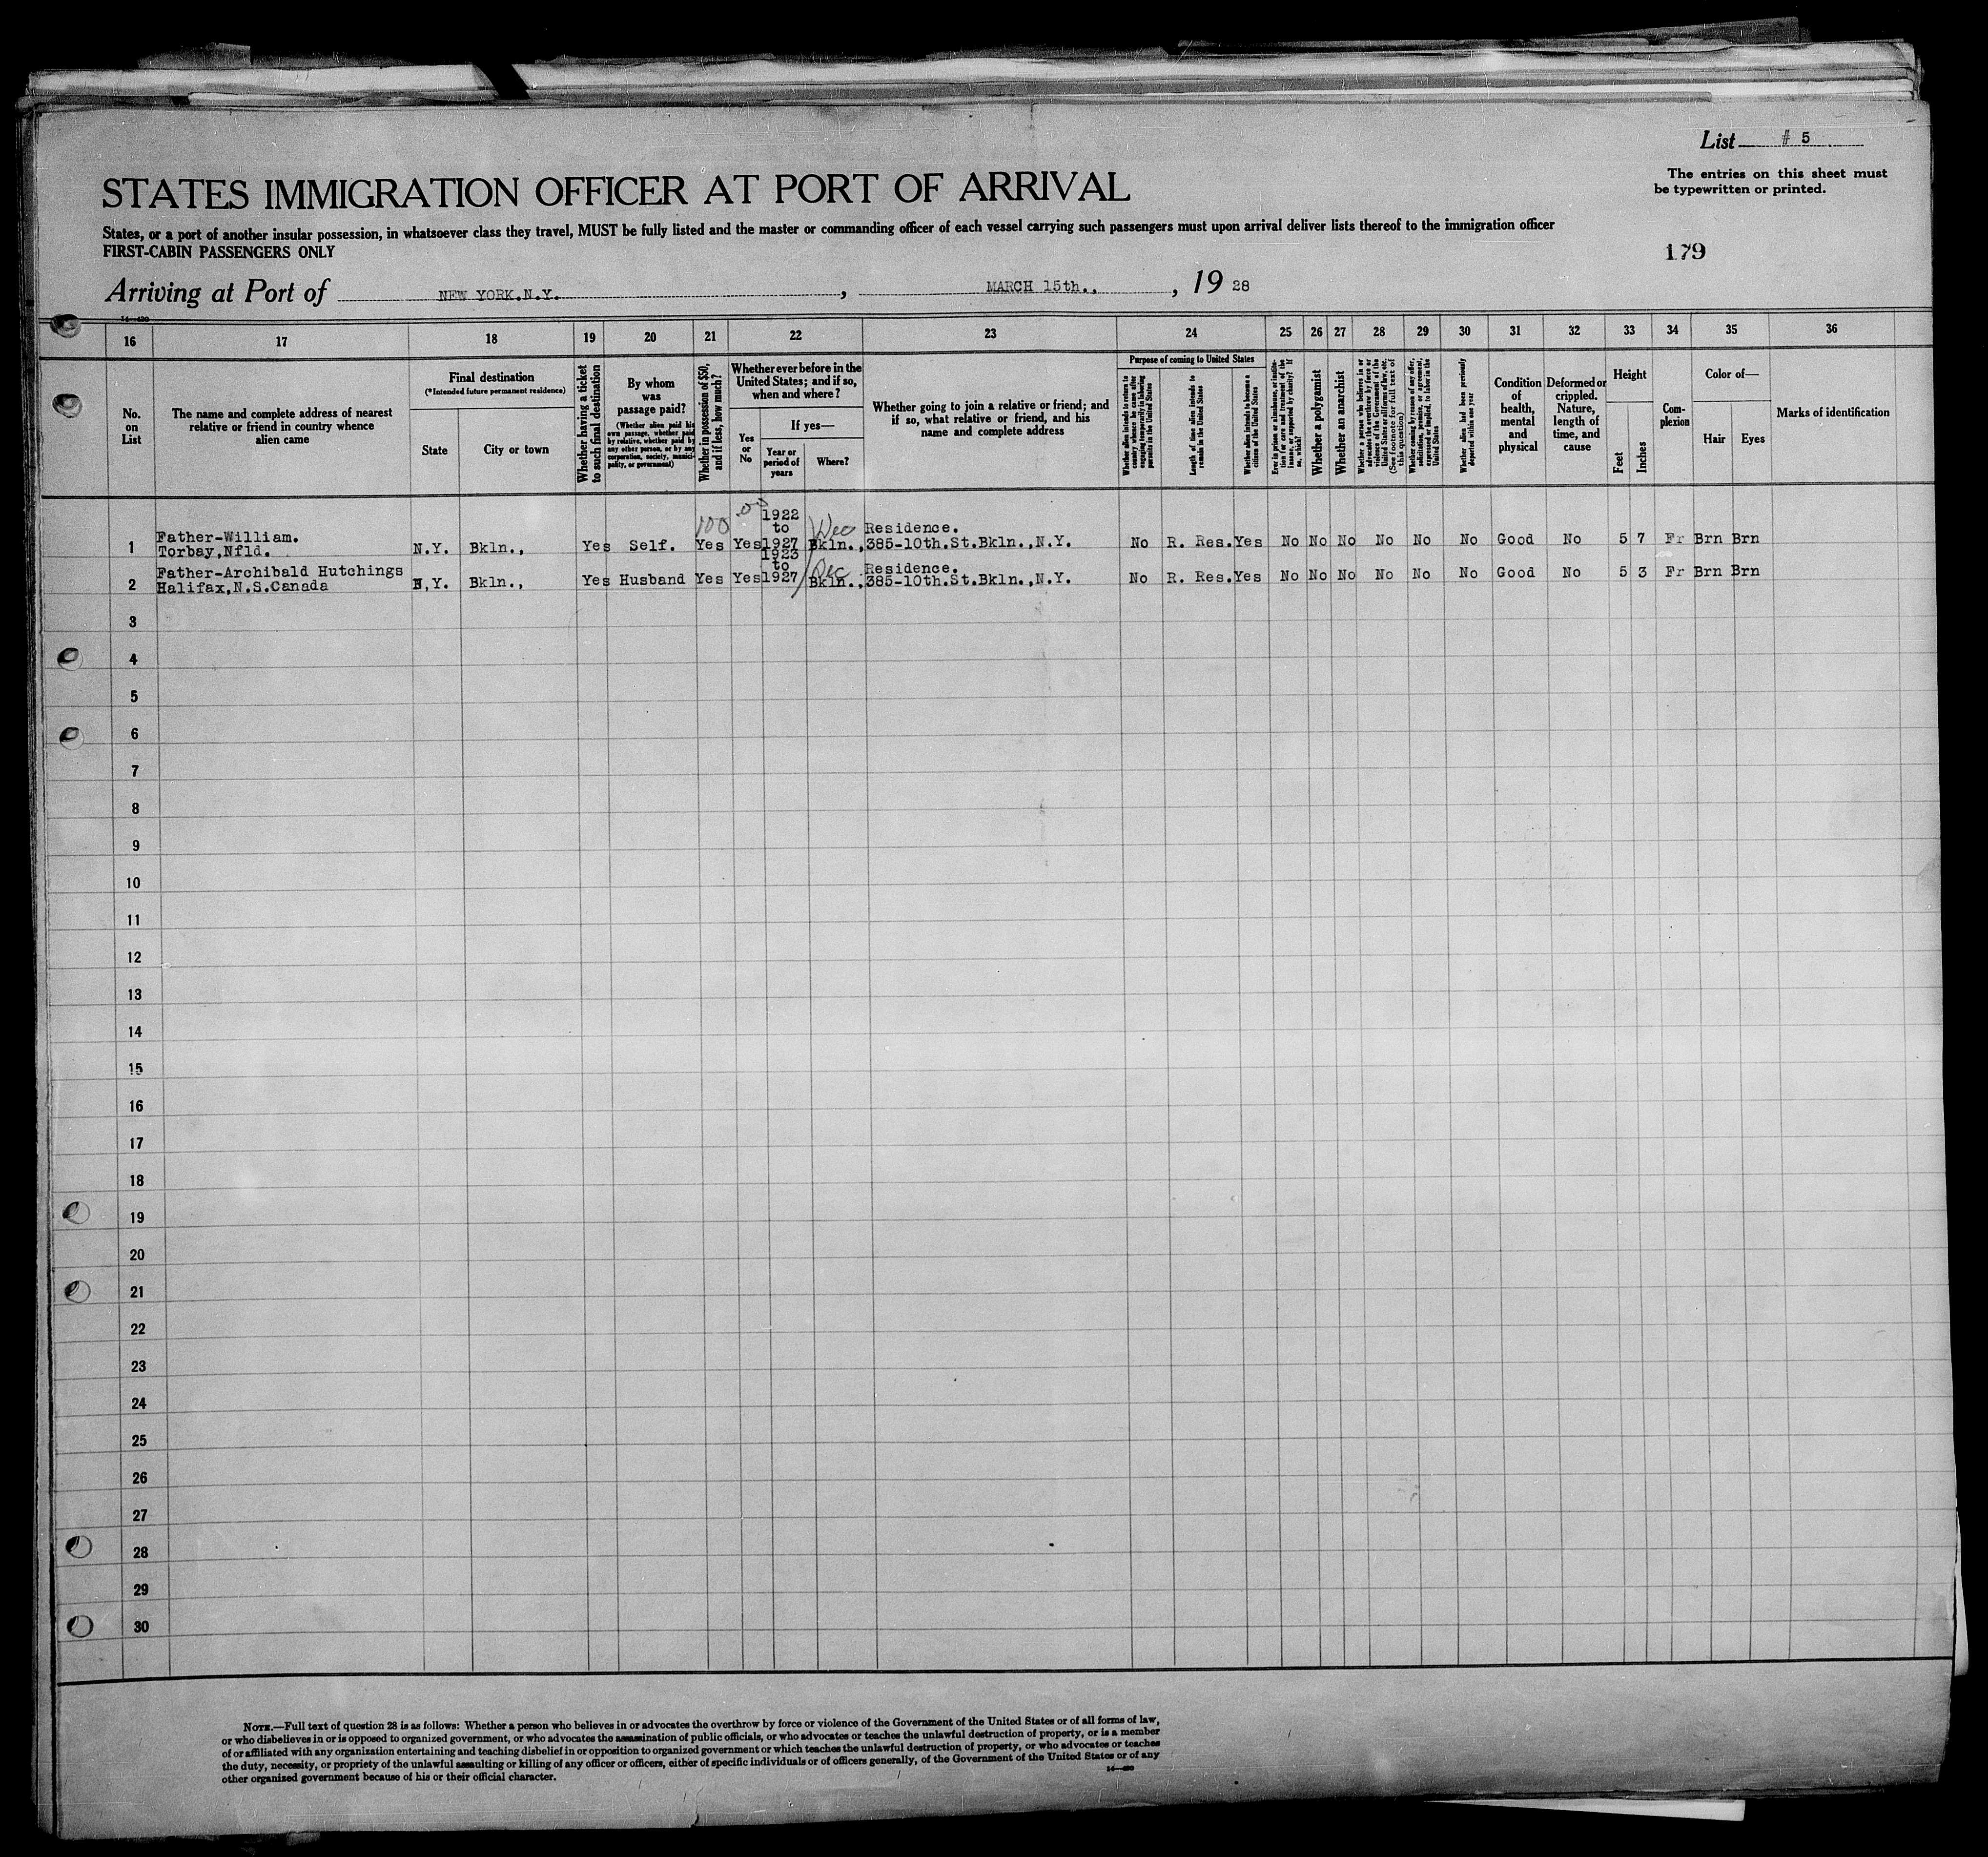 List # 5
The entries on this sheet must
be typewritten or printed.
STATES IMMIGRATION OFFICER AT PORT OF ARRIVAL
States, or a port of another insular possession, in whatsoever class they travel, MUST be fully listed and the master or commanding officer of each vessel carrying such passengers must upon arrival deliver lists thereof to the immigration officer
FIRST-CABIN PASSENGERS ONLY
179
Arriving at Port of NEW YORK.N.Y. , MARCH 15th., , 19 28
14—430
16 17 18 19 20 21 22 23 24 25 26 27 28 29 30 31 32 33 34 35 36
No.
on
List
The name and complete address of nearest
relative or friend in country whence
alien came
Final destination
(*Intended future permanent residence)
State
City or town
Whether having a ticket
to such final destination
By whom
was
passage paid?
(Whether alien paid his
own passage, whether paid
by relative, whether paid by
any other person, or by any
corporation, society, munici-
pality, or government)
Whether in possession of $50,
and if less, how much?
Whether ever before in the
United States; and if so,
when and where?
Yes
or
No
If yes—
Year or
period of
years
Where?
Whether going to join a relative or friend; and
if so, what relative or friend, and his
name and complete address
Purpose of coming to United States
Whether alien intends to return to
country whence he came after
engaging temporarily in laboring
pursuits in the United States
Length of time alien intends to
remain in the United States
Whether alien intends to become a
citizen of the United States
Ever in prison or almshouse, or institu-
tion for care and treatment of the
insane, or supported by charity? If
so, which?
Whether a polygamist
Whether an anarchist
Whether a person who believes in or
advocates the overthrow by force or
violence of the Government of the
United States or all forms of law, etc.
(See footnote for full text of
this question)
Whether coming by reason of any offer,
solicitation, promise, or agreement,
expressed or implied, to labor in the
United States
Whether alien had been previously
deported within one year
Condition
of
health,
mental
and
physical
Deformed or
crippled.
Nature,
length of
time, and
cause
Height
Feet
Inches
Com-
plexion
Color of—
Hair
Eyes
Marks of identification
100 .00 1922
to Dec Residence.
Father-William.
1 Torbay,Nfld. N.Y. Bkln., Yes Self. Yes Yes 1927 Bkln., 385-10th.St.Bkln.,N.Y. No R. Res. Yes No No No No No No Good No 5 7 Fr Brn Brn
1923
to Dec Residence.
Father-Archibald Hutchings
2 Halifax,N.S.Canada N,Y. Bkln., Yes Husband Yes Yes 1927 Bkln., 385-10th.St.Bkln.,N.Y. No R. Res. Yes No No No No No No Good No 5 3 Fr Brn Brn
3
4
5
6
7
8
9
10
11
12
13
14
15
16
17
18
19
20
21
22
23
24
25
26
27
28
29
30
NOTE.—Full text of question 28 is as follows: Whether a person who believes in or advocates the overthrow by force or violence of the Government of the United States or of all forms of law,
or who disbelieves in or is opposed to organized government, or who advocates the assassination of public officials, or who advocates or teaches the unlawful destruction of property, or is a member
of or affiliated with any organization entertaining and teaching disbelief in or opposition to organized government or which teaches the unlawful destruction of property, or who advocates or teaches
the duty, necessity, or propriety of the unlawful assaulting or killing of any officer or officers, either of specific individuals or of officers generally, of the Government of the United States or of any
other organized government because of his or their official character.
14—430